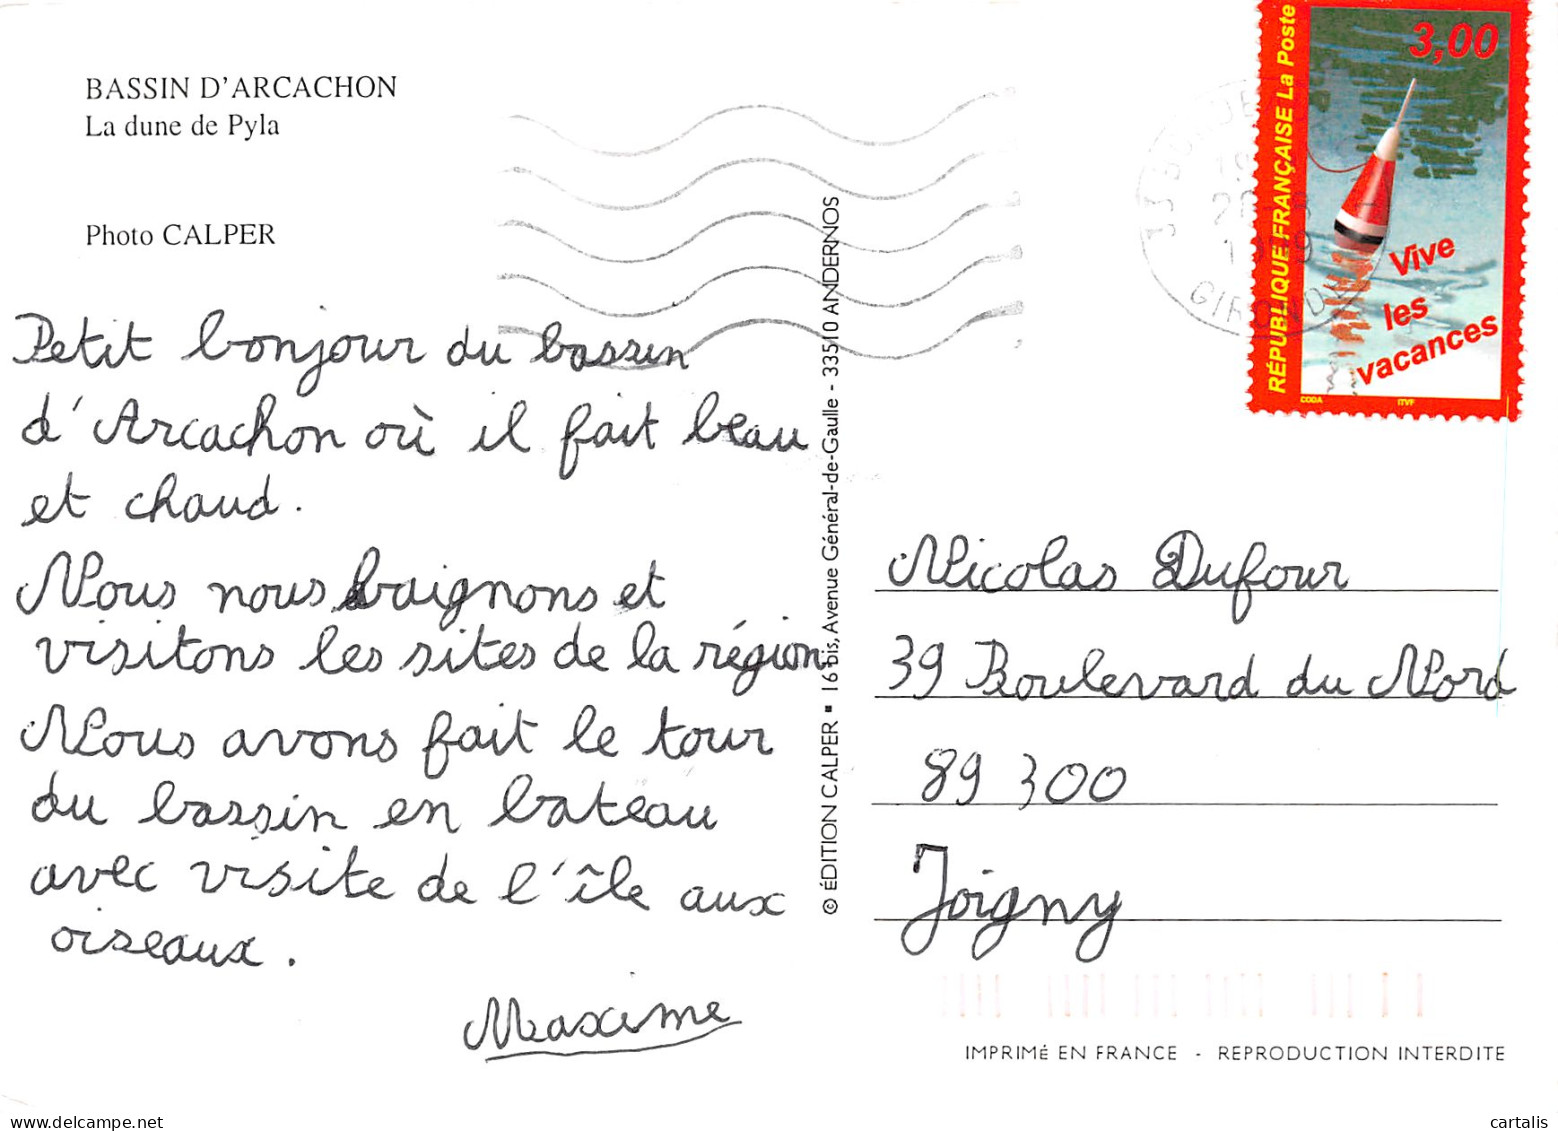 BASSIN D'ARCACHON
La dune de Pyla
Photo CALPER
Petit bonjour du bassin
d'Arcachon où il fait beau
et chaud.
Nous nous baignons et
visitons les sites de la région.
Nous avons fait le tour
du bassin en bateau
avec visite de l'île aux
oiseaux.
Maxime
© ÉDITION CALPER ▪ 16 bis, Avenue Général-de-Gaulle - 33510 ANDERNOS
RÉPUBLIQUE FRANÇAISE La Poste
3,00
Vive
les
vacances
CODA ITVF
GIRONDE
Nicolas Dufour
39 Boulevard du Nord
89 300
Joigny
IMPRIMé EN FRANCE - REPRODUCTION INTERDITE
cartalis
www.delcampe.net